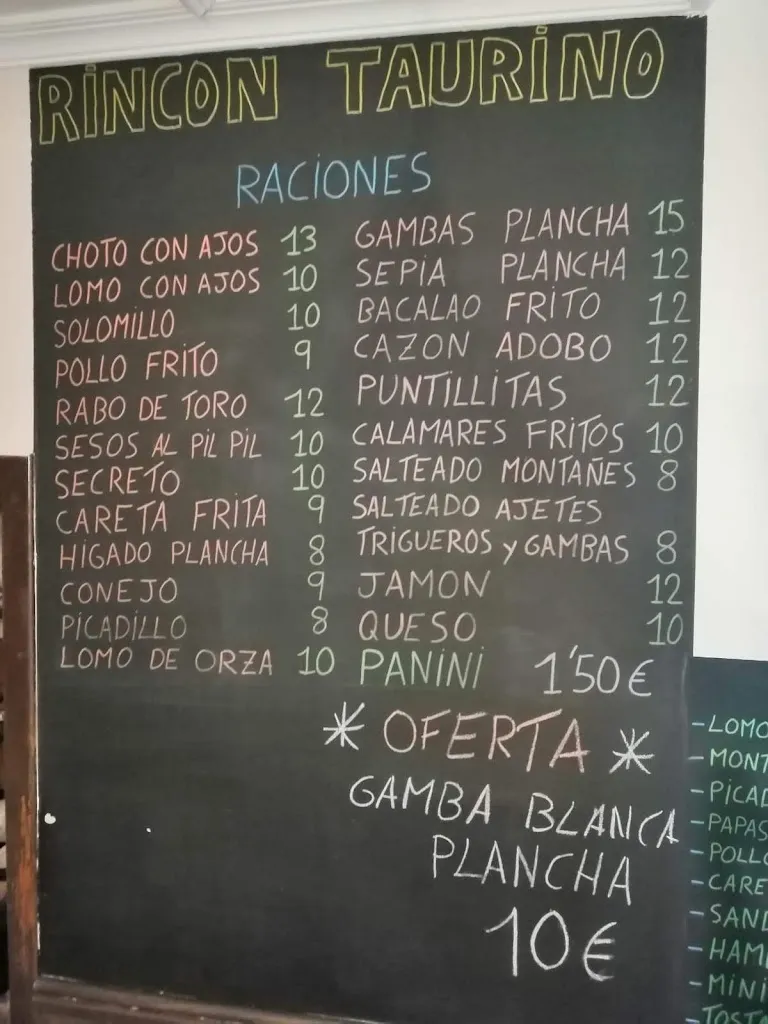 RINCON TAURINO
RACIONES
CHOTO CON AJOS 13
LOMO CON AJOS 10
SOLOMILLO 10
POLLO FRITO 9
RABO DE TORO 12
SESOS AL PIL PIL 10
SECRETO 10
CARETA FRITA 9
HIGADO PLANCHA 8
CONEJO 9
PICADILLO 8
LOMO DE ORZA 10
GAMBAS PLANCHA 15
SEPIA PLANCHA 12
BACALAO FRITO 12
CAZON ADOBO 12
PUNTILLITAS 12
CALAMARES FRITOS 10
SALTEADO MONTAÑES 8
SALTEADO AJETES
TRIGUEROS y GAMBAS 8
JAMON 12
QUESO 10
PANINI 1'50€
* OFERTA *
GAMBA BLANCA
PLANCHA
10€
-LOMO
-MONT
-PICAD
-PAPAS
-POLLO
-CARE
-SAND
-HAM
-MINI
-TOSTA